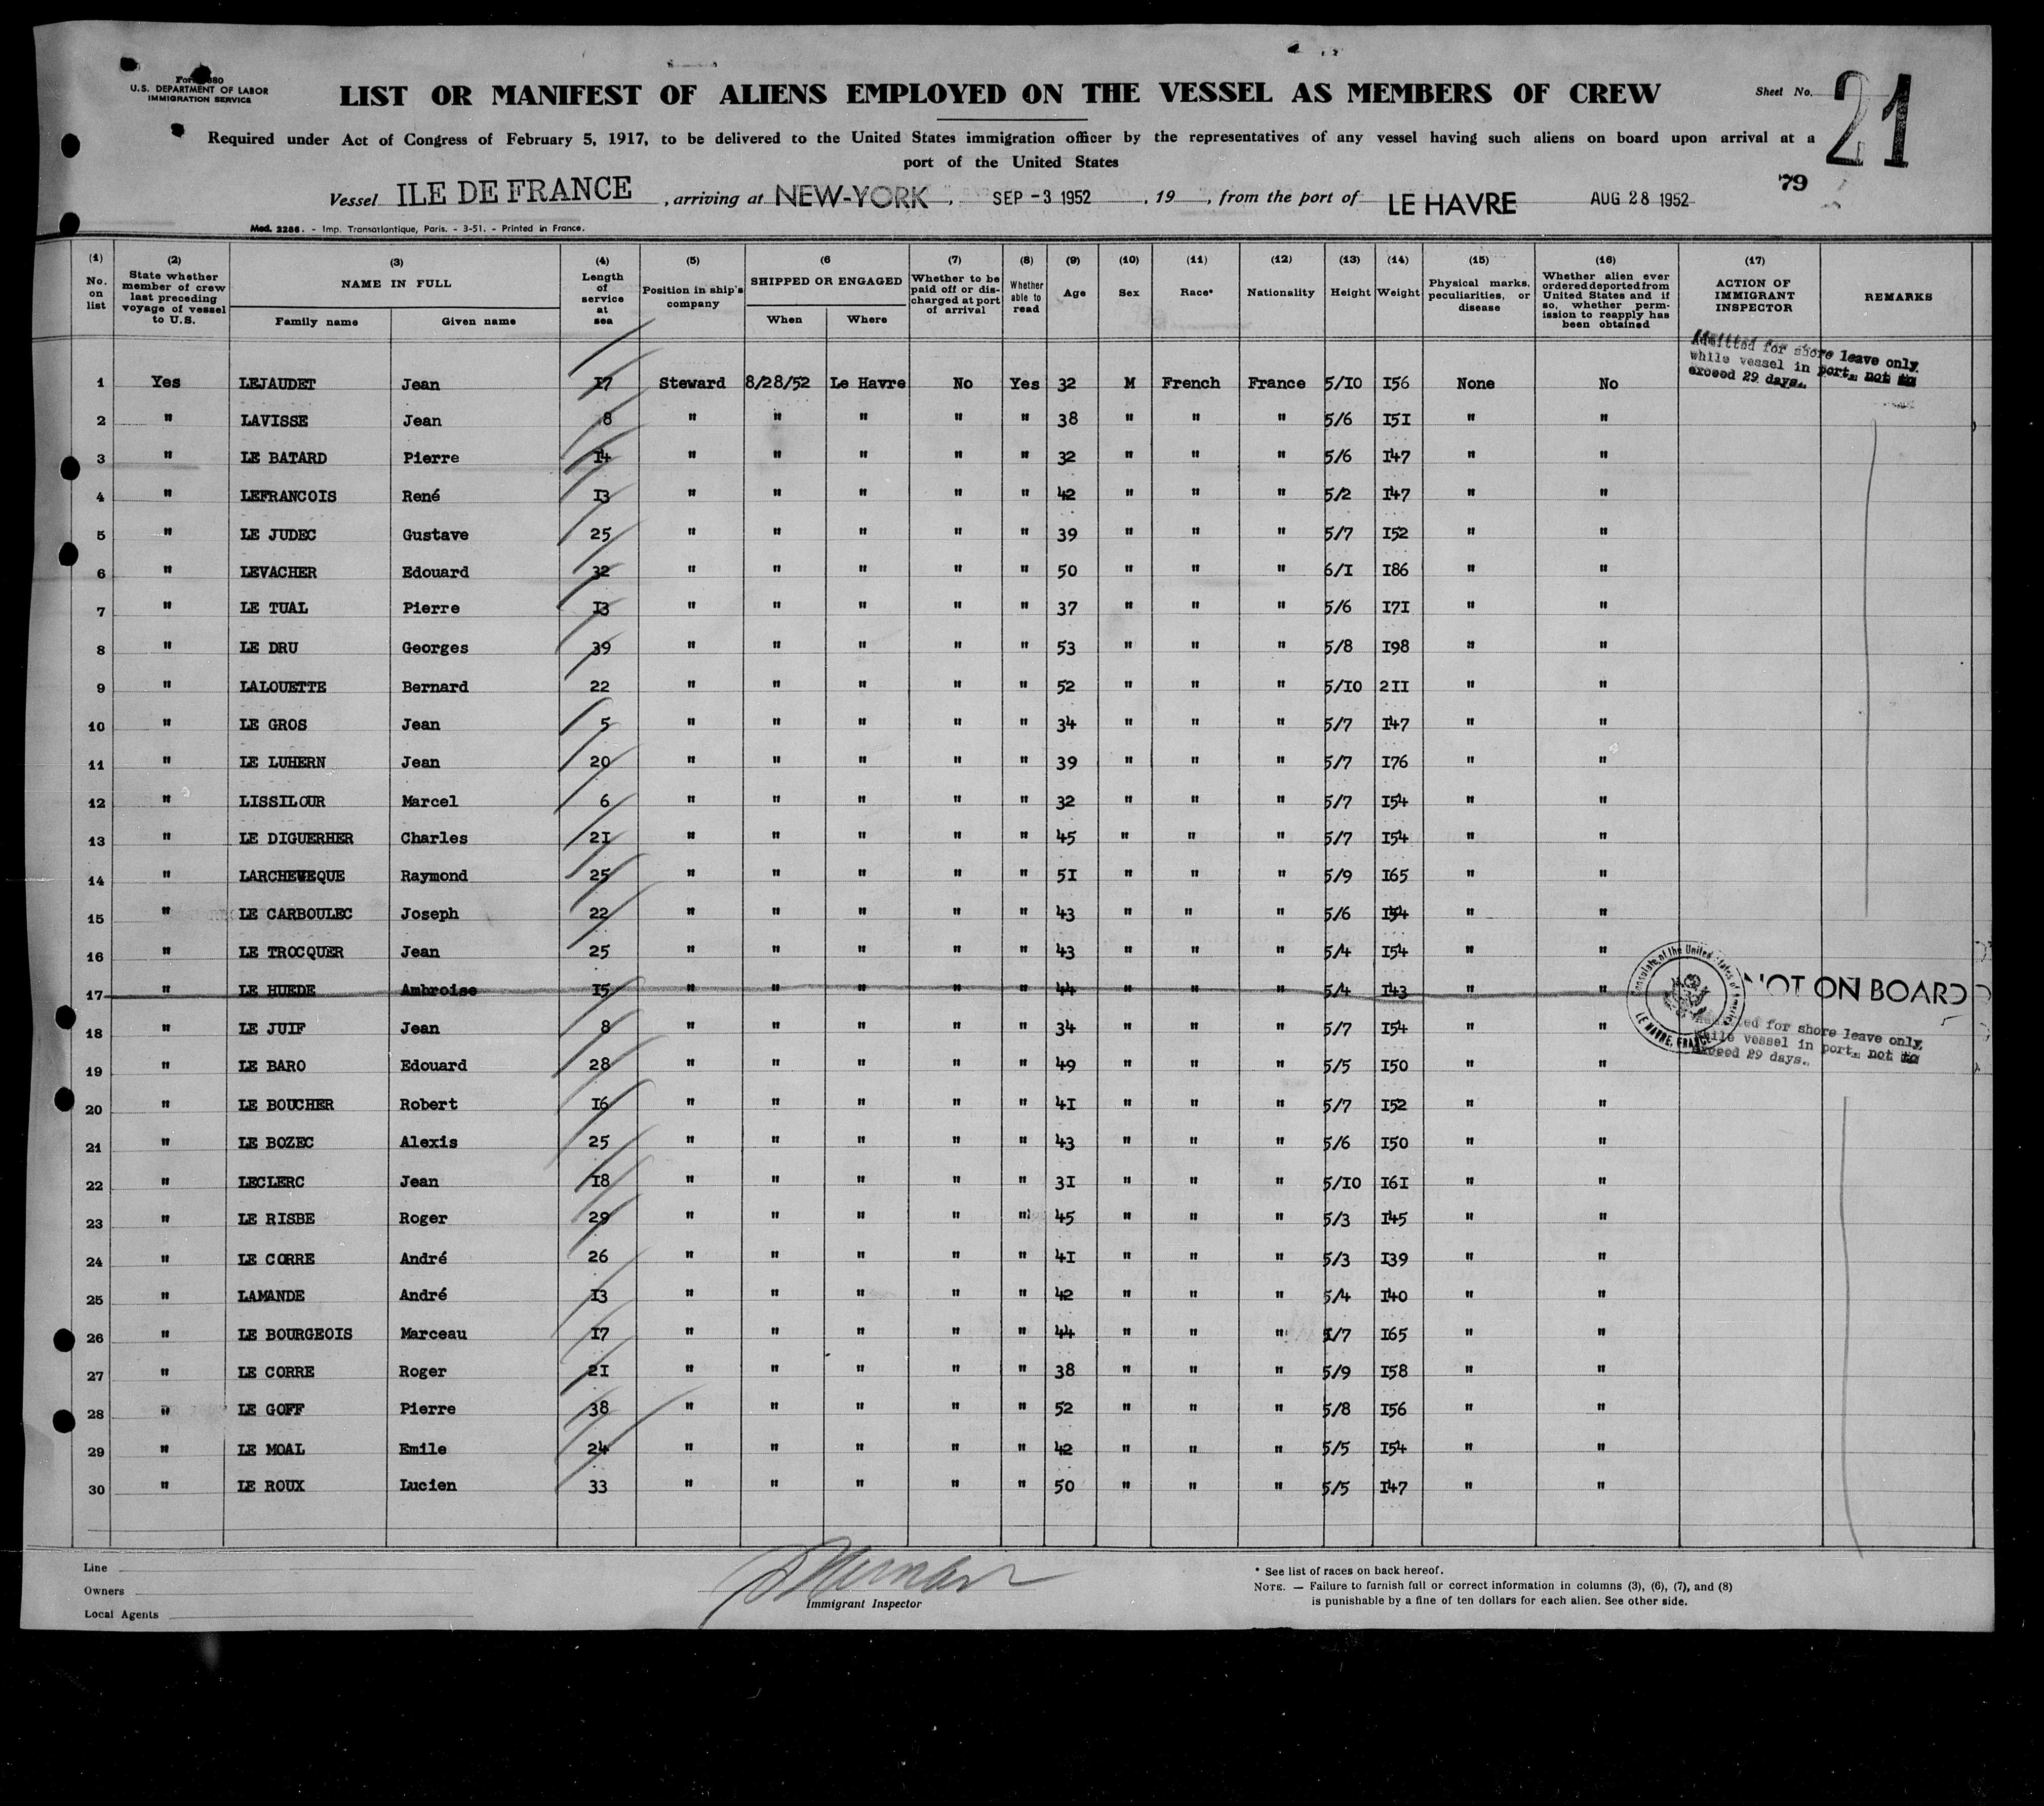 Form 680
U.S. DEPARTMENT OF LABOR
IMMIGRATION SERVICE
LIST OR MANIFEST OF ALIENS EMPLOYED ON THE VESSEL AS MEMBERS OF CREW
Sheet No. 21
Required under Act of Congress of February 5, 1917, to be delivered to the United States immigration officer by the representatives of any vessel having such aliens on board upon arrival at a
port of the United States
79
Vessel ILE DE FRANCE, arriving at NEW-YORK, SEP -3 1952, 19 , from the port of LE HAVRE AUG 28 1952
Mod. 2286. - Imp. Transatlantique, Paris. - 3-51. - Printed in France.
(1) No. on list (2) State whether member of crew last preceding voyage of vessel to U.S. (3) NAME IN FULL Family name Given name (4) Length of service at sea (5) Position in ship's company (6 SHIPPED OR ENGAGED When Where (7) Whether to be paid off or discharged at port of arrival (8) Whether able to read (9) Age (10) Sex (11) Race* (12) Nationality (13) Height (14) Weight (15) Physical marks, peculiarities, or disease (16) Whether alien ever ordered deported from United States and if so, whether permission to reapply has been obtained (17) ACTION OF IMMIGRANT INSPECTOR REMARKS
Admitted for shore leave only
while vessel in port, not to
exceed 29 days.
1 Yes LEJAUDET Jean 17 Steward 8/28/52 Le Havre No Yes 32 M French France 5/10 156 None No
2 " LAVISSE Jean 8 " " " " " 38 " " " 5/6 151 " "
3 " LE BATARD Pierre 14 " " " " " 32 " " " 5/6 147 " "
4 " LEFRANCOIS René 13 " " " " " 42 " " " 5/2 147 " "
5 " LE JUDEC Gustave 25 " " " " " 39 " " " 5/7 152 " "
6 " LEVACHER Edouard 32 " " " " " 50 " " " 6/1 186 " "
7 " LE TUAL Pierre 13 " " " " " 37 " " " 5/6 171 " "
8 " LE DRU Georges 39 " " " " " 53 " " " 5/8 198 " "
9 " LALOUETTE Bernard 22 " " " " " 52 " " " 5/10 211 " "
10 " LE GROS Jean 5 " " " " " 34 " " " 5/7 147 " "
11 " LE LUHERN Jean 20 " " " " " 39 " " " 5/7 176 " "
12 " LISSILOUR Marcel 6 " " " " " 32 " " " 5/7 154 " "
13 " LE DIGUERHER Charles 21 " " " " " 45 " " " 5/7 154 " "
14 " LARCHEVEQUE Raymond 25 " " " " " 51 " " " 5/9 165 " "
15 " LE CARBOULEC Joseph 22 " " " " " 43 " " " 5/6 154 " "
16 " LE TROCQUER Jean 25 " " " " " 43 " " " 5/4 154 " "
17 " LE HUEDE Ambroise 15 " " " " " 44 " " " 5/4 143 " " NOT ON BOARD
Consulate of the United States of America
LE HAVRE, FRANCE
18 " LE JUIF Jean 8 " " " " " 34 " " " 5/7 154 " "
Admitted for shore leave only
while vessel in port, not to
exceed 29 days.
19 " LE BARO Edouard 28 " " " " " 49 " " " 5/5 150 " "
20 " LE BOUCHER Robert 16 " " " " " 41 " " " 5/7 152 " "
21 " LE BOZEC Alexis 25 " " " " " 43 " " " 5/6 150 " "
22 " LECLERC Jean 18 " " " " " 31 " " " 5/10 161 " "
23 " LE RISBE Roger 29 " " " " " 45 " " " 5/3 145 " "
24 " LE CORRE André 26 " " " " " 41 " " " 5/3 139 " "
25 " LAMANDE André 13 " " " " " 42 " " " 5/4 140 " "
26 " LE BOURGEOIS Marceau 17 " " " " " 44 " " " 5/7 165 " "
27 " LE CORRE Roger 21 " " " " " 38 " " " 5/9 158 " "
28 " LE GOFF Pierre 38 " " " " " 52 " " " 5/8 156 " "
29 " LE MOAL Emile 24 " " " " " 42 " " " 5/5 154 " "
30 " LE ROUX Lucien 33 " " " " " 50 " " " 5/5 147 " "
Line
Owners
Local Agents
Immigrant Inspector
* See list of races on back hereof.
NOTE. — Failure to furnish full or correct information in columns (3), (6), (7), and (8)
is punishable by a fine of ten dollars for each alien. See other side.